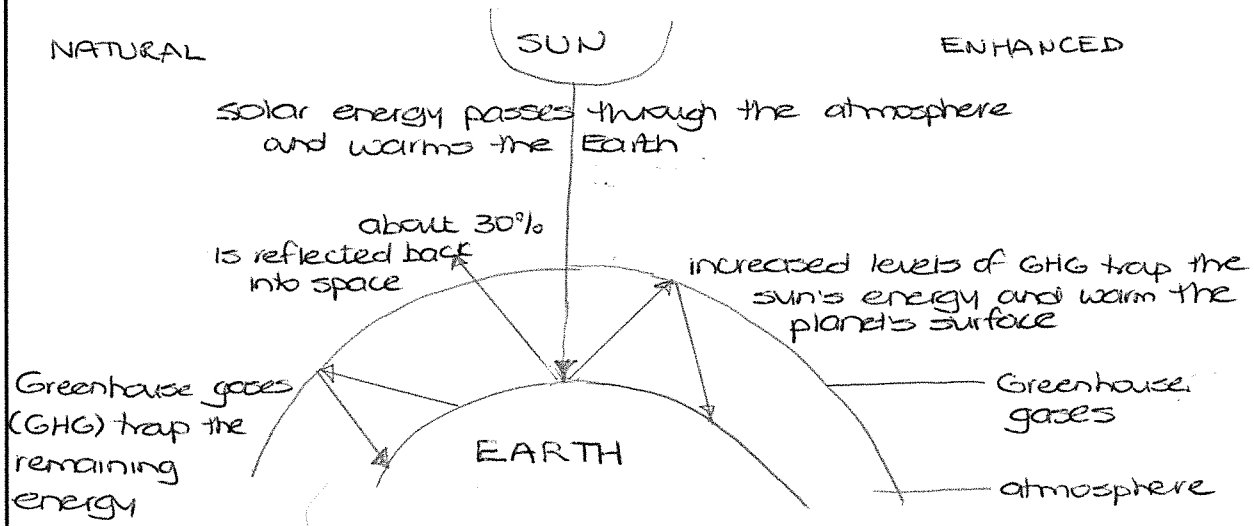 NATURAL
SUN
ENHANCED
solar energy passes through the atmosphere
and warms the Earth
about 30%
is reflected back
into space
increased levels of GHG trap the
sun's energy and warm the
planet's surface
Greenhouse gases
(GHG) trap the
remaining
energy
EARTH
Greenhouse
gases
atmosphere